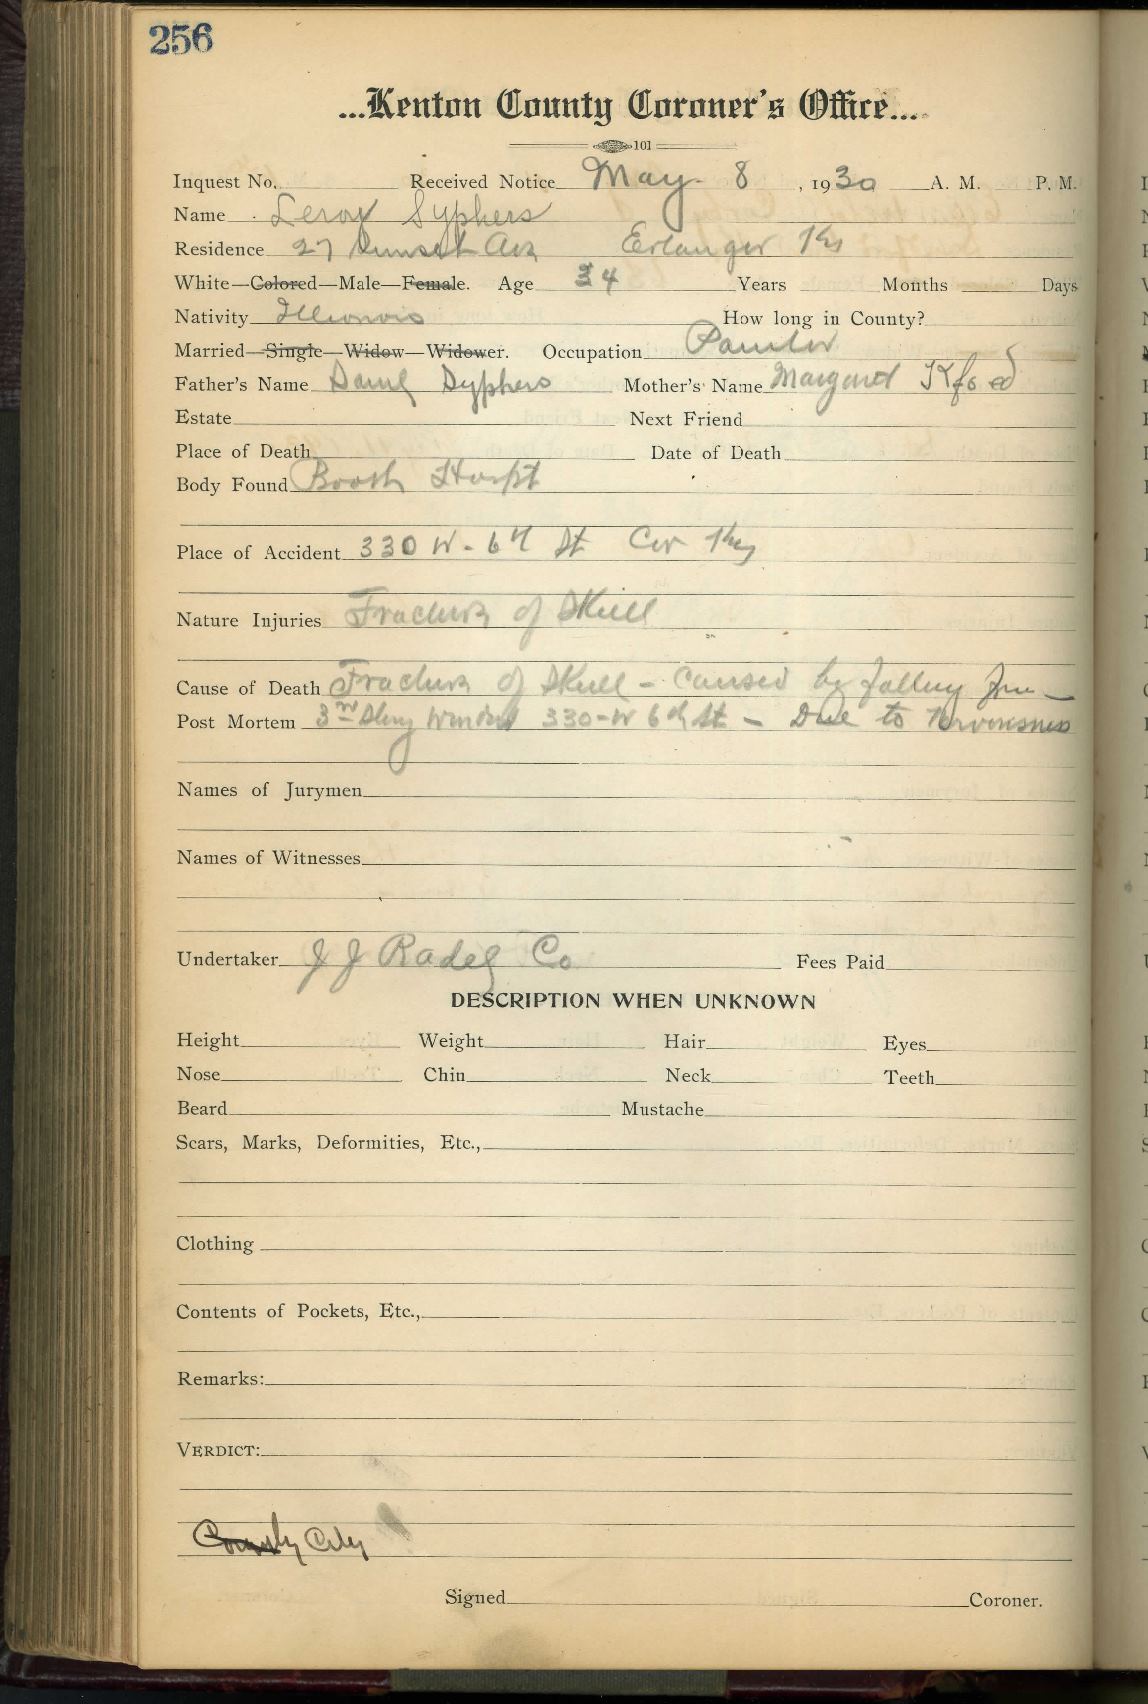 256
...Kenton County Coroner's Office...
101
Inquest No. Received Notice May 8, 1930 A. M. P. M.
Name Leroy Syphers
Residence 27 Sunset Ave Erlanger Ky
White—Colored—Male—Female. Age 34 Years Months Days
Nativity Illinois How long in County?
Married—Single—Widow—Widower. Occupation Painter
Father's Name Daniel Syphers Mother's Name Margaret
Estate Next Friend
Place of Death Date of Death
Body Found Booth Hospt
Place of Accident 330 W. 6th St Cov Ky
Nature Injuries Fracture of Skull
Cause of Death Fracture of Skull — Caused by falling from
Post Mortem 3rd Story Window 330-W 6th St — Due to Nervousness
Names of Jurymen
Names of Witnesses
Undertaker J J Radel Co Fees Paid
DESCRIPTION WHEN UNKNOWN
Height Weight Hair Eyes
Nose Chin Neck Teeth
Beard Mustache
Scars, Marks, Deformities, Etc.,
Clothing
Contents of Pockets, Etc.,
Remarks:
VERDICT:
County City
Signed Coroner.